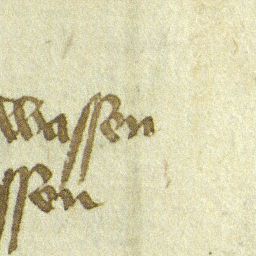 wassen
ssen